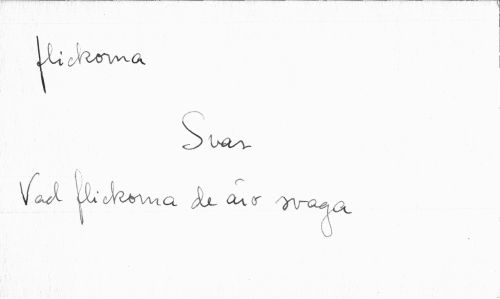 flickorna
Svar
Vad flickorna de äro svaga